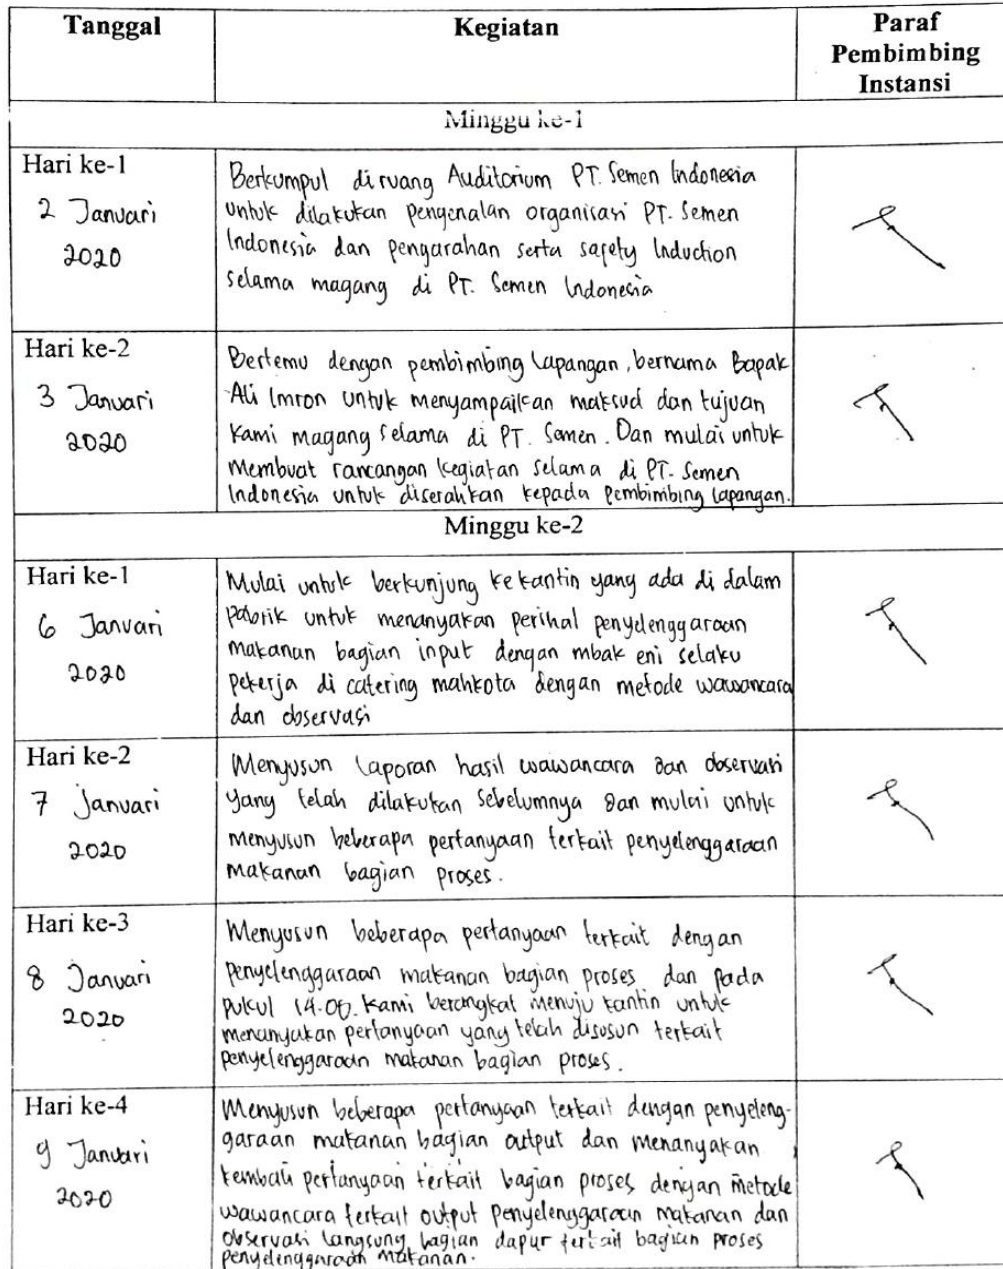 Tanggal
Kegiatan
Paraf
Pembimbing
Instansi
Minggu ke-1
Hari ke-1
2 Januari
2020
Berkumpul diruang Auditorium PT. Semen Indonesia
untuk dilakukan pengenalan organisasi PT. Semen
Indonesia dan pengarahan serta safety Induction
selama magang di PT. Semen Indonesia
Hari ke-2
3 Januari
2020
Bertemu dengan pembimbing lapangan, bernama Bapak
Ali Imron untuk menyampaikan maksud dan tujuan
kami magang selama di PT. Semen. Dan mulai untuk
membuat rancangan kegiatan selama di PT. Semen
Indonesia untuk diserahkan kepada pembimbing lapangan.
Minggu ke-2
Hari ke-1
6 Januari
2020
Mulai untuk berkunjung ke kantin yang ada di dalam
pabrik untuk menanyakan perihal penyelenggaraan
makanan bagian input dengan mbak eni selaku
pekerja di catering mahkota dengan metode wawancara
dan observasi
Hari ke-2
7 Januari
2020
Menyusun laporan hasil wawancara dan observasi
yang telah dilakukan sebelumnya dan mulai untuk
menyusun beberapa pertanyaan terkait penyelenggaraan
makanan bagian proses.
Hari ke-3
8 Januari
2020
Menyusun beberapa pertanyaan terkait dengan
penyelenggaraan makanan bagian proses dan pada
pukul 14.00. kami berangkat menuju kantin untuk
menanyakan pertanyaan yang telah disusun terkait
penyelenggaraan makanan bagian proses.
Hari ke-4
9 Januari
2020
Menyusun beberapa pertanyaan terkait dengan penyeleng-
garaan makanan bagian output dan menanyakan
kembali pertanyaan terkait bagian proses dengan metode
wawancara terkait output penyelenggaraan makanan dan
observasi langsung bagian dapur terkait bagian proses
penyelenggaraan makanan.